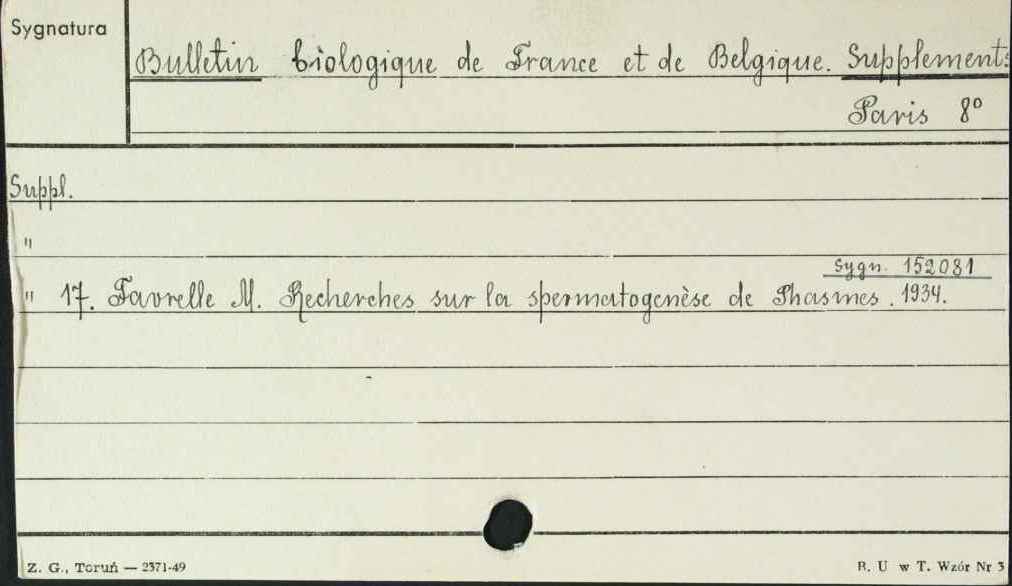 Sygnatura
Bulletin biologique de France et de Belgique. Supplements
Paris 8º
Suppl.
"
Sygn. 152081
" 17. Favrelle M. Recherches sur la spermatogenèse de Phasmes. 1934.
Z. G., Toruń — 2371-49
B. U w T. Wzór Nr 3